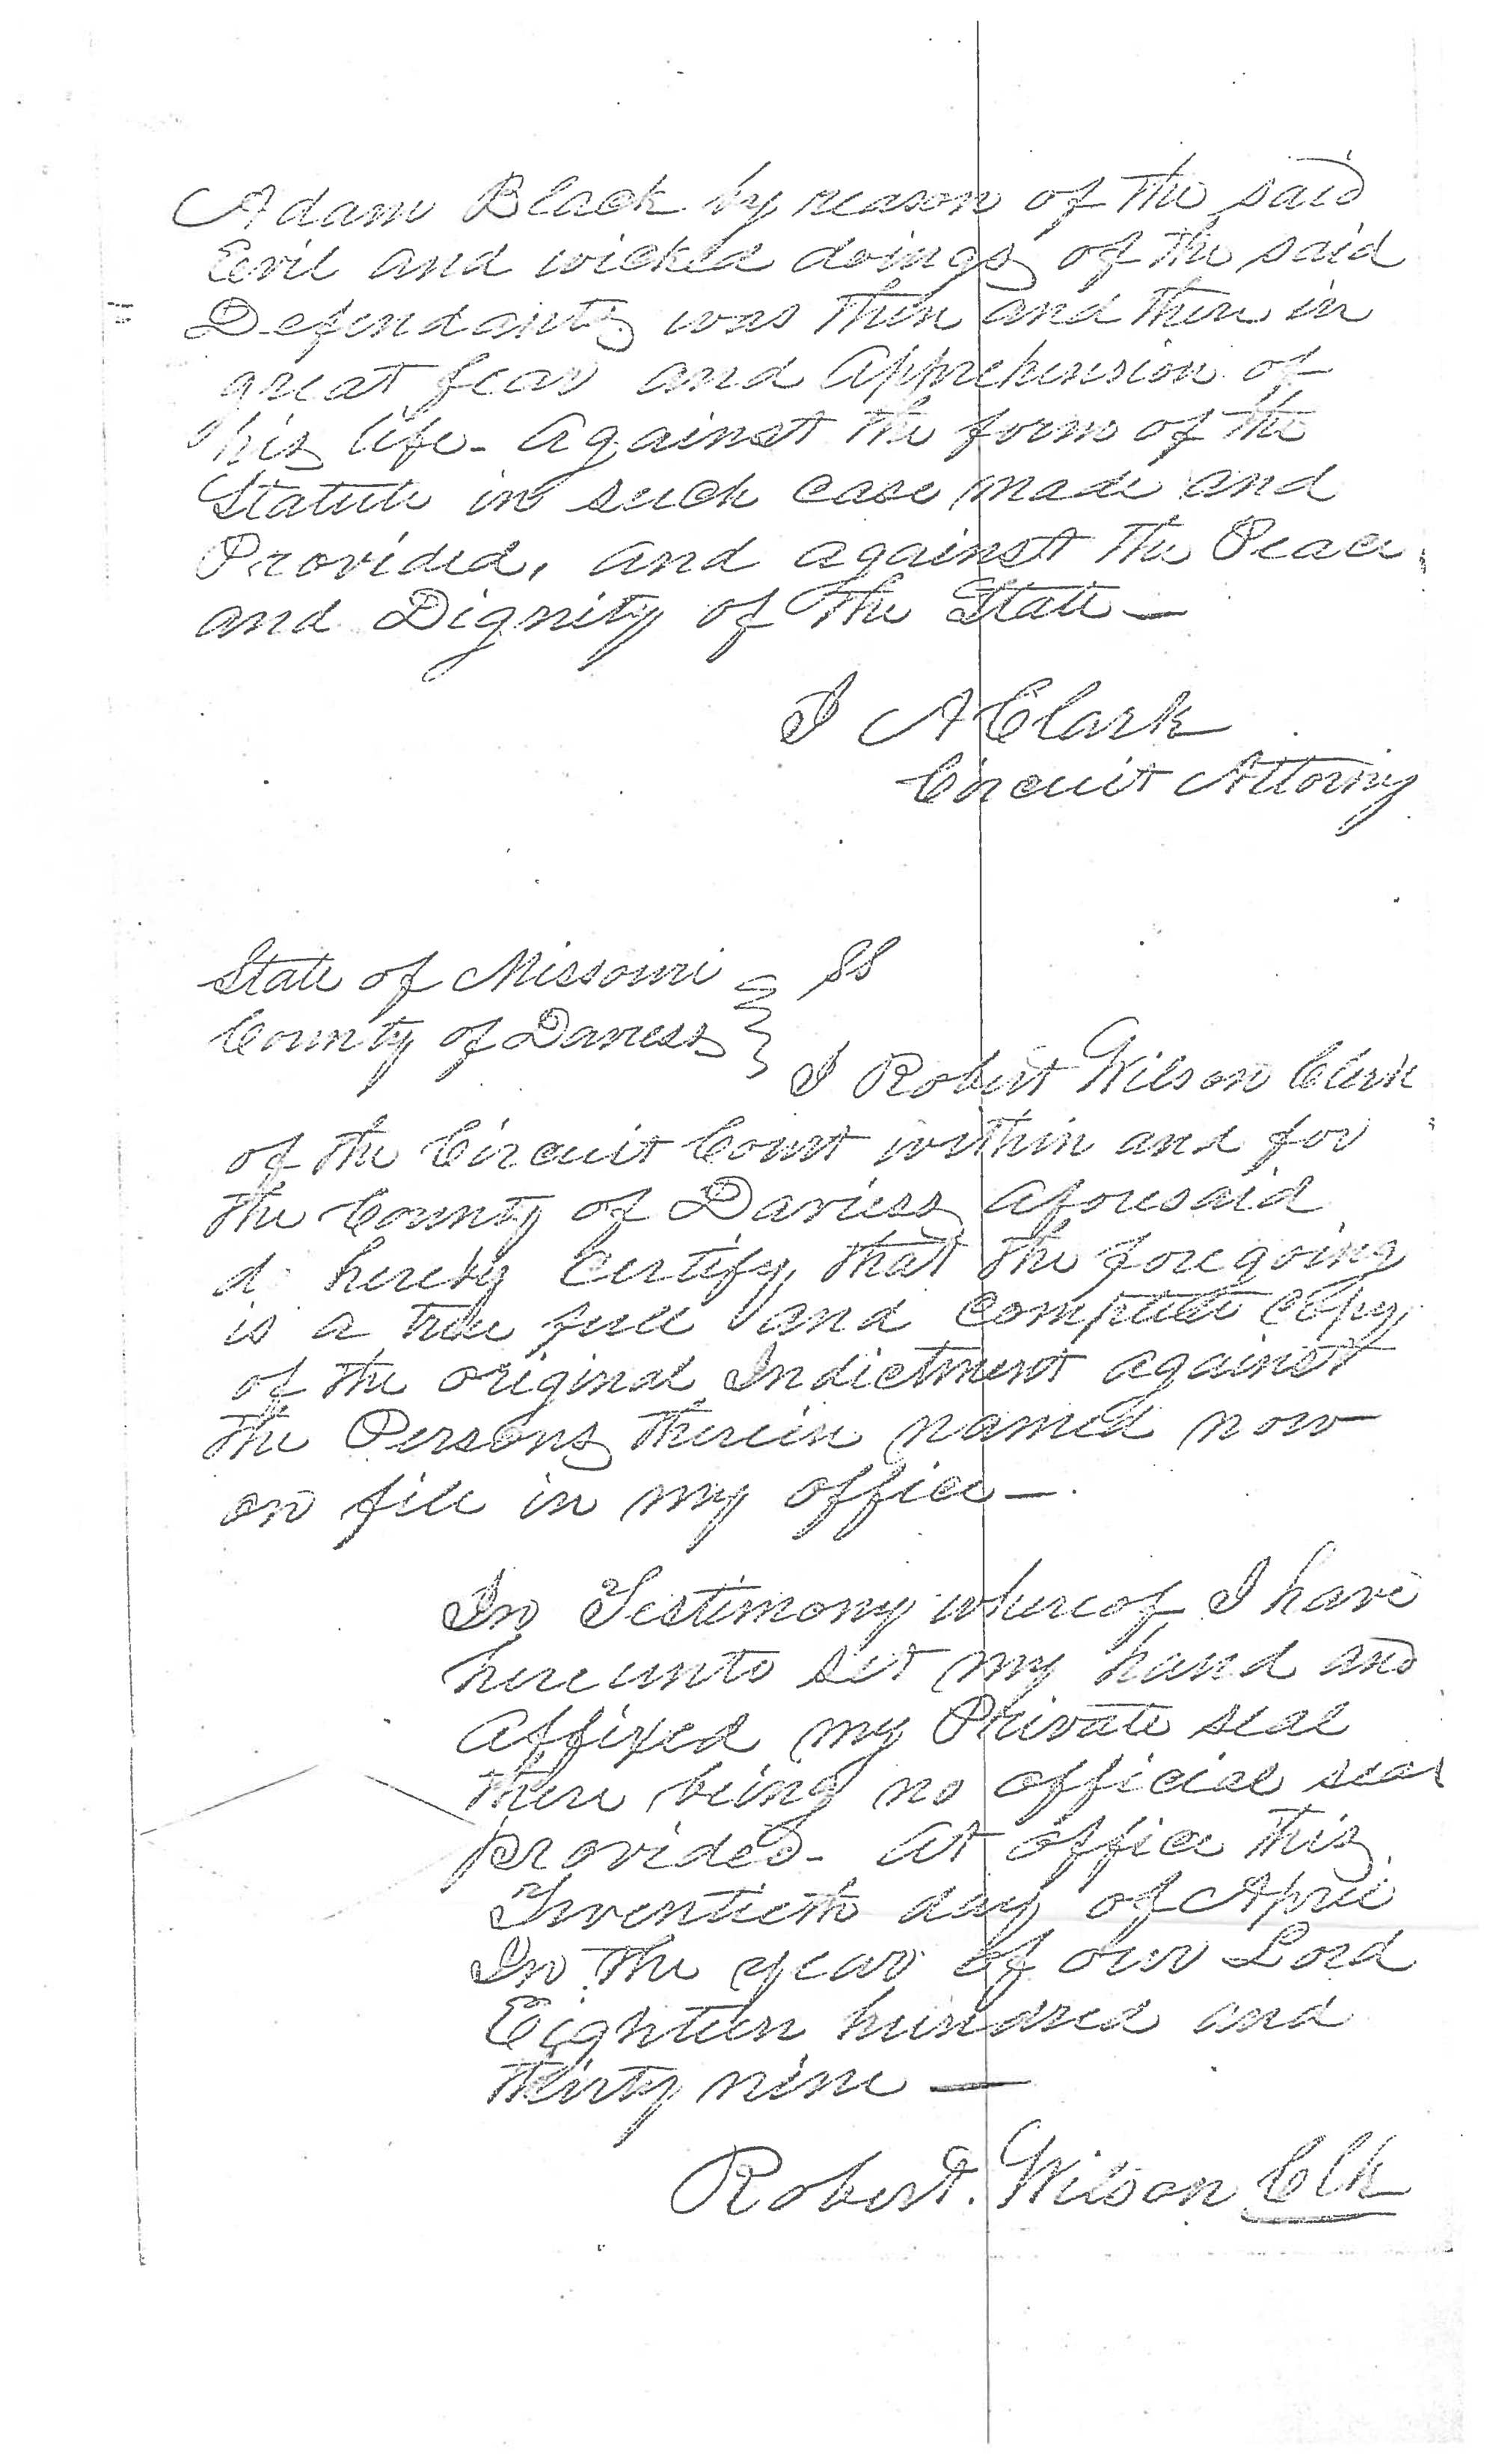 Adam Black by reason of the said
Evil and wicked doings of the said
Defendants was then and there in
great fear and apprehension of
his life - against the form of the
Statute in such case made and
Provided, and against the Peace
and Dignity of the State —
J A Clark
Circuit Attorny
State of Missouri } SS
County of Daviess }
I Robert Wilson Clerk
of the Circuit Court within and for
the County of Daviess aforesaid
d hereby Certify, that the foregoing
is a true full and complete copy
of the original Indictment against
the Persons therein named now
on file in my office —
In Testimony whereof I have
hereunto set my hand and
affixed my Private seal
there being no official seal
provided - at office this
Twentieth day of April
In the year of our Lord
Eighteen hundred and
thirty nine —
Robert. Wilson Clk